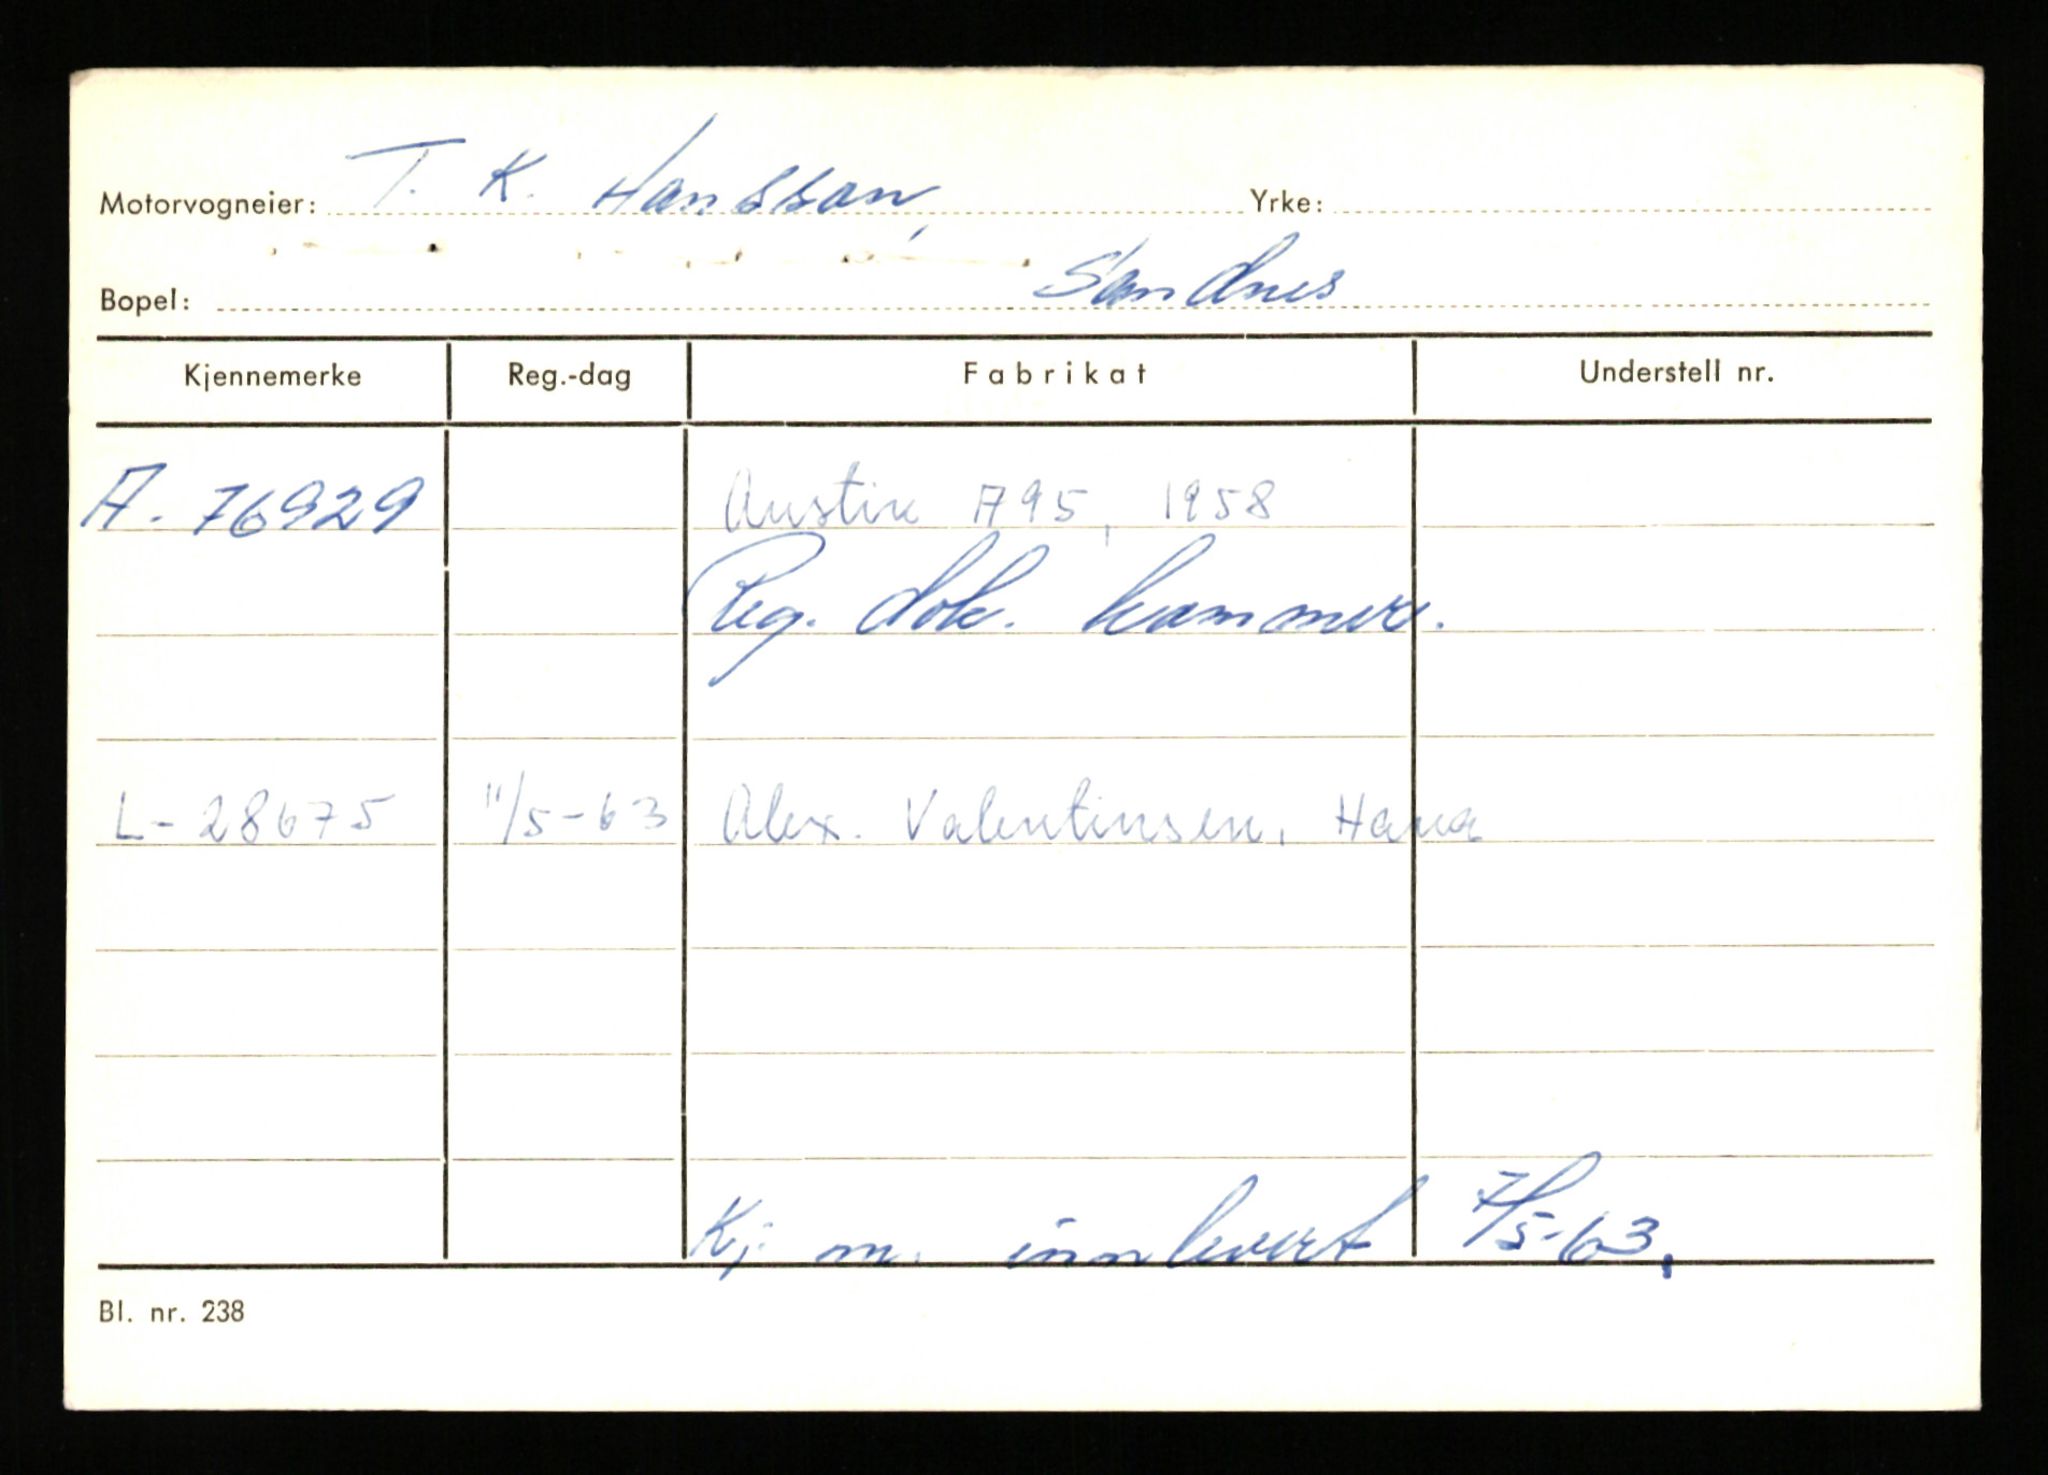 Motorvogneier: T. K. Hansson, Yrke:
Bopel: Sandnes
Kjennemerke Reg.-dag Fabrikat Understell nr.
A. 76929 Austin A95, 1958
Reg. dok. kammer.
L-28675 11/5-63 Alex. Valentinsen, Hana
Kj. m. innlevert 7/5-63.
Bl. nr. 238